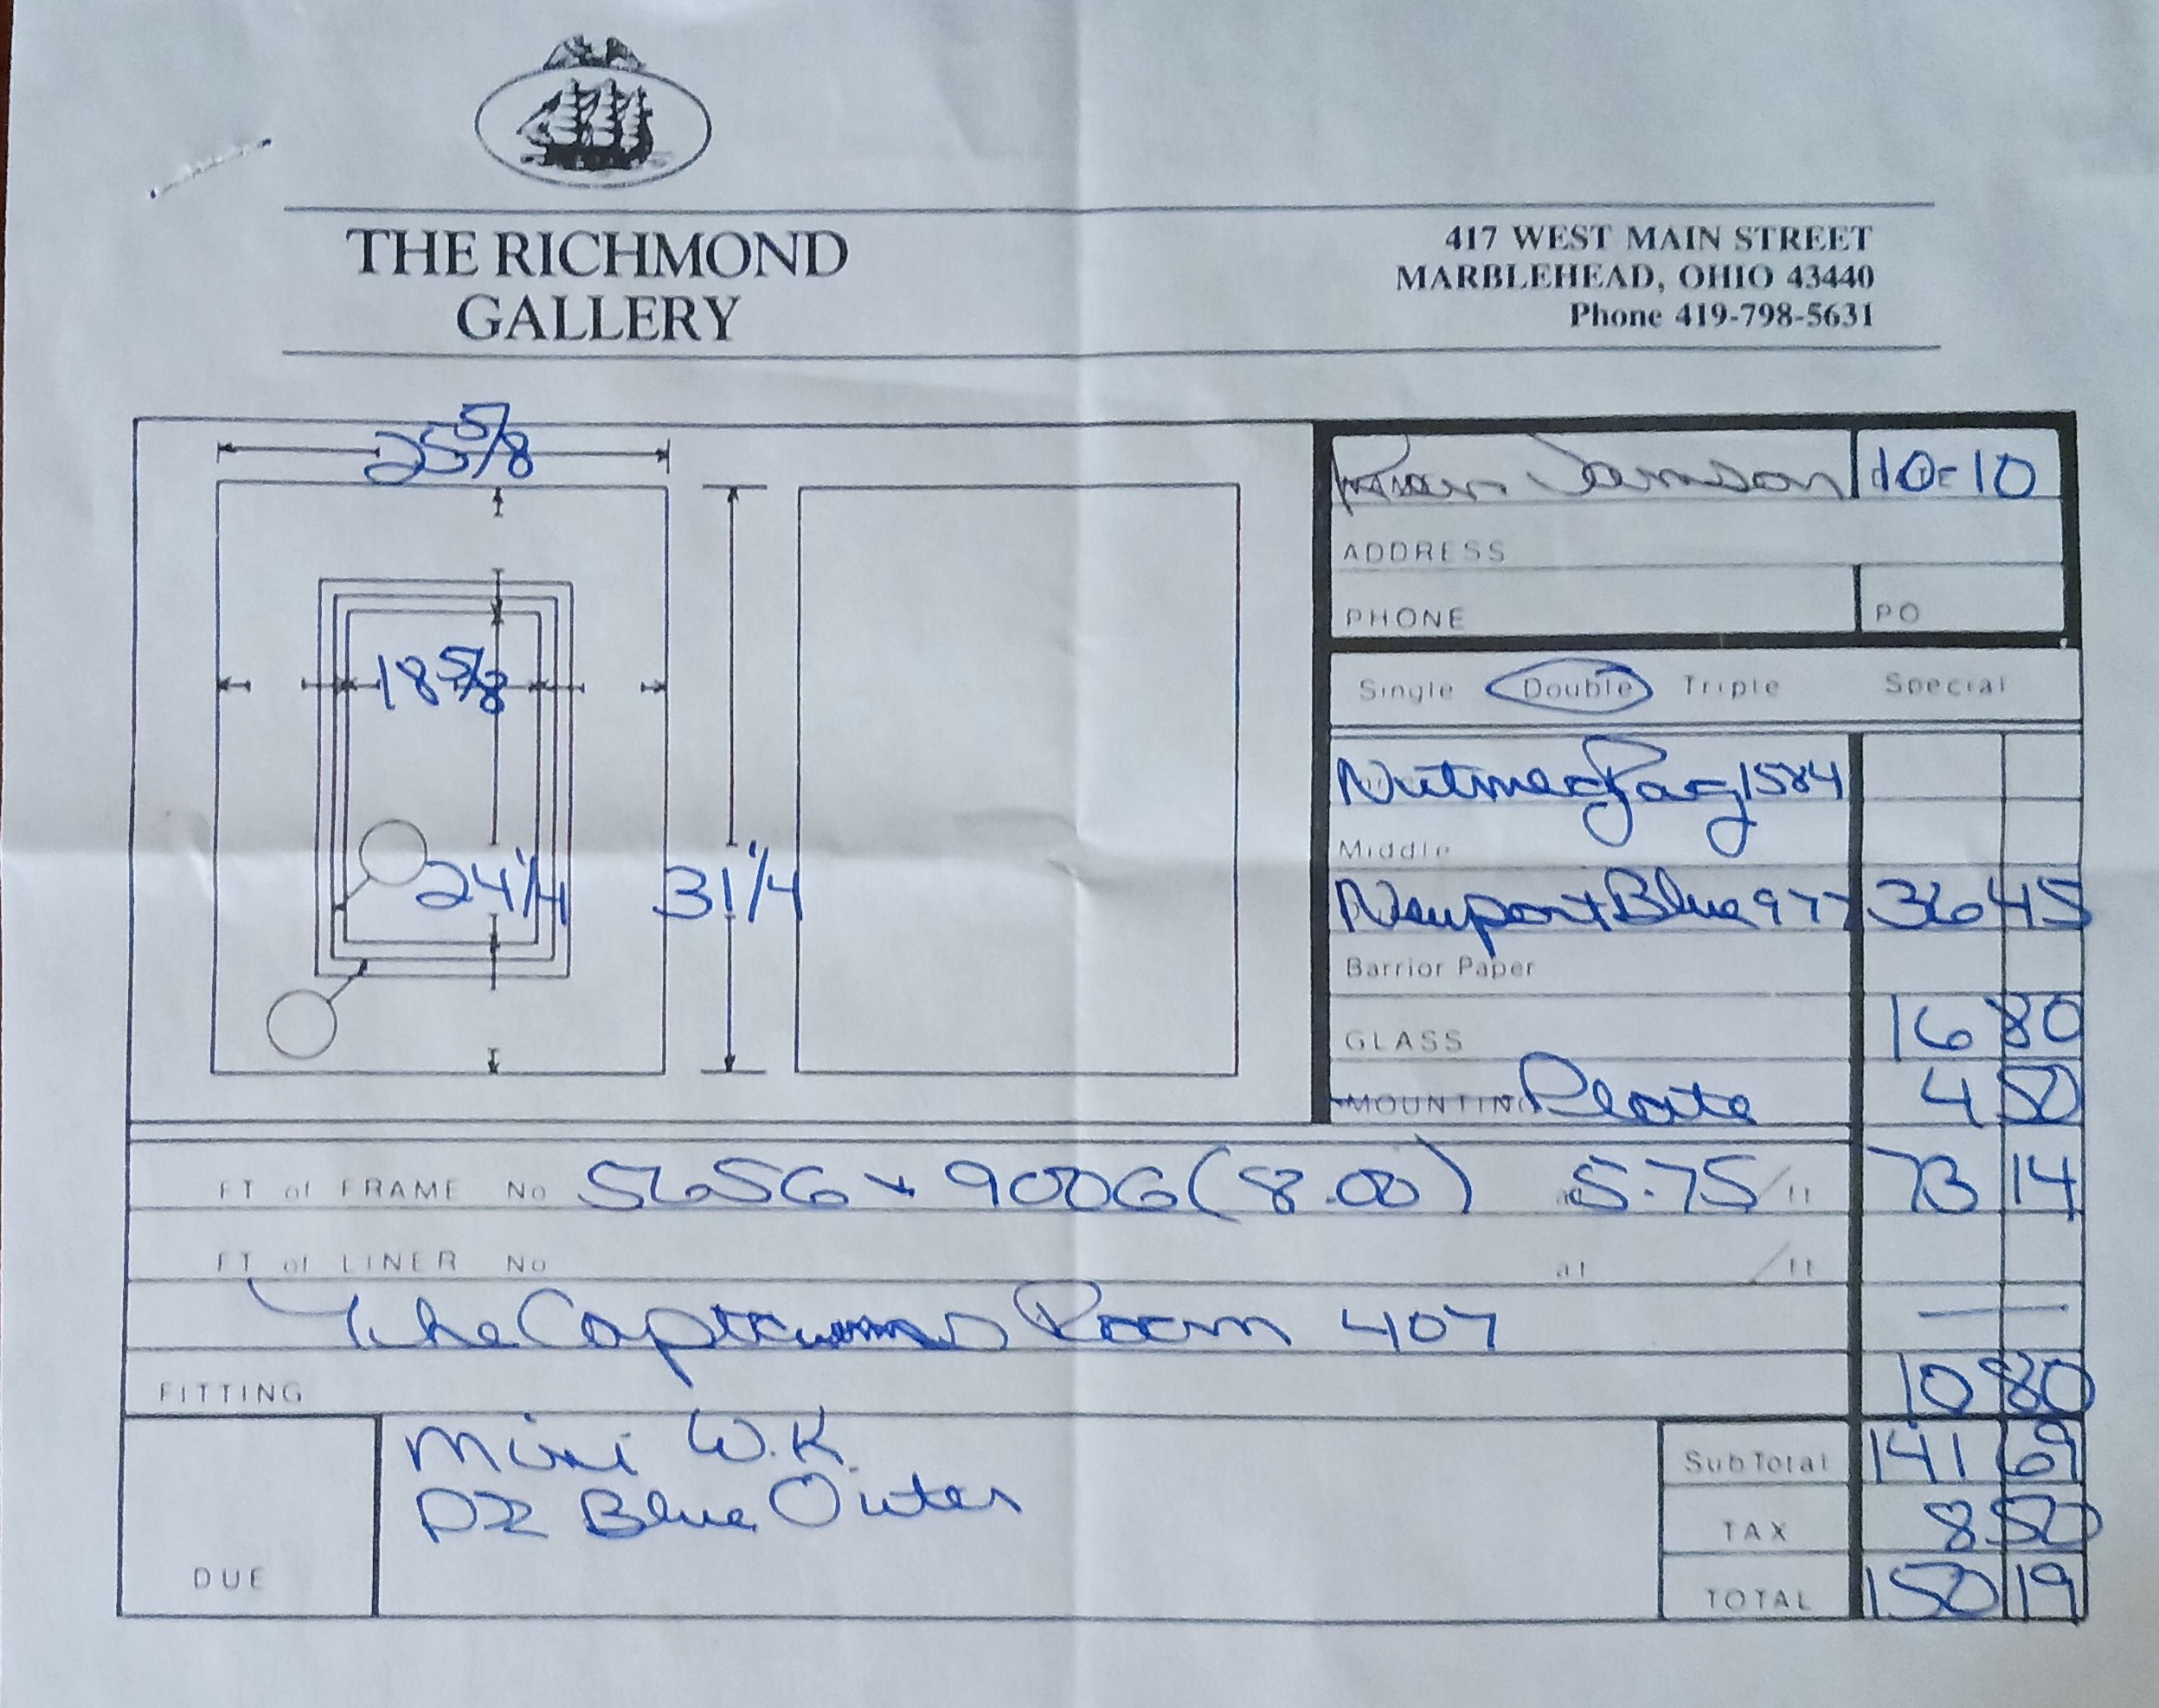 THE RICHMOND
GALLERY
417 WEST MAIN STREET
MARBLEHEAD, OHIO 43440
Phone 419-798-5631
25 5/8
18 5/8
24 1/4
31 1/4
10-10
ADDRESS
PHONE PO
Single Double Triple Special
Nutmeg 1584
Middle
Newport Blue 977 36 45
Barrior Paper
GLASS 16 80
MOUNTING Plate 4 50
FT of FRAME No 5656 + 9006 (8.00) 5.75/ft 73 14
FT of LINER No at /ft
The Captains Room 407 —
FITTING 10 80
Mini W.K.
Blue Outer
DUE
SubTotal 141 69
TAX 8 50
TOTAL 150 19